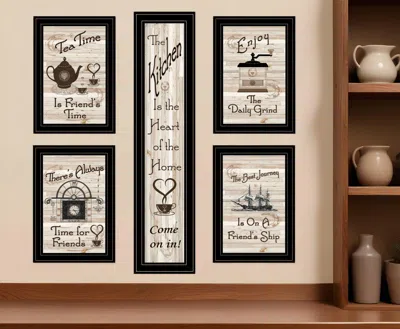 Tea Time
Is Friend's
Time
There's Always
Time for
Friends
The
Kitchen
Is the
Heart
of the
Home
Come
on in!
Enjoy
The
Daily Grind
The Best Journey
Is On A
Friend's Ship